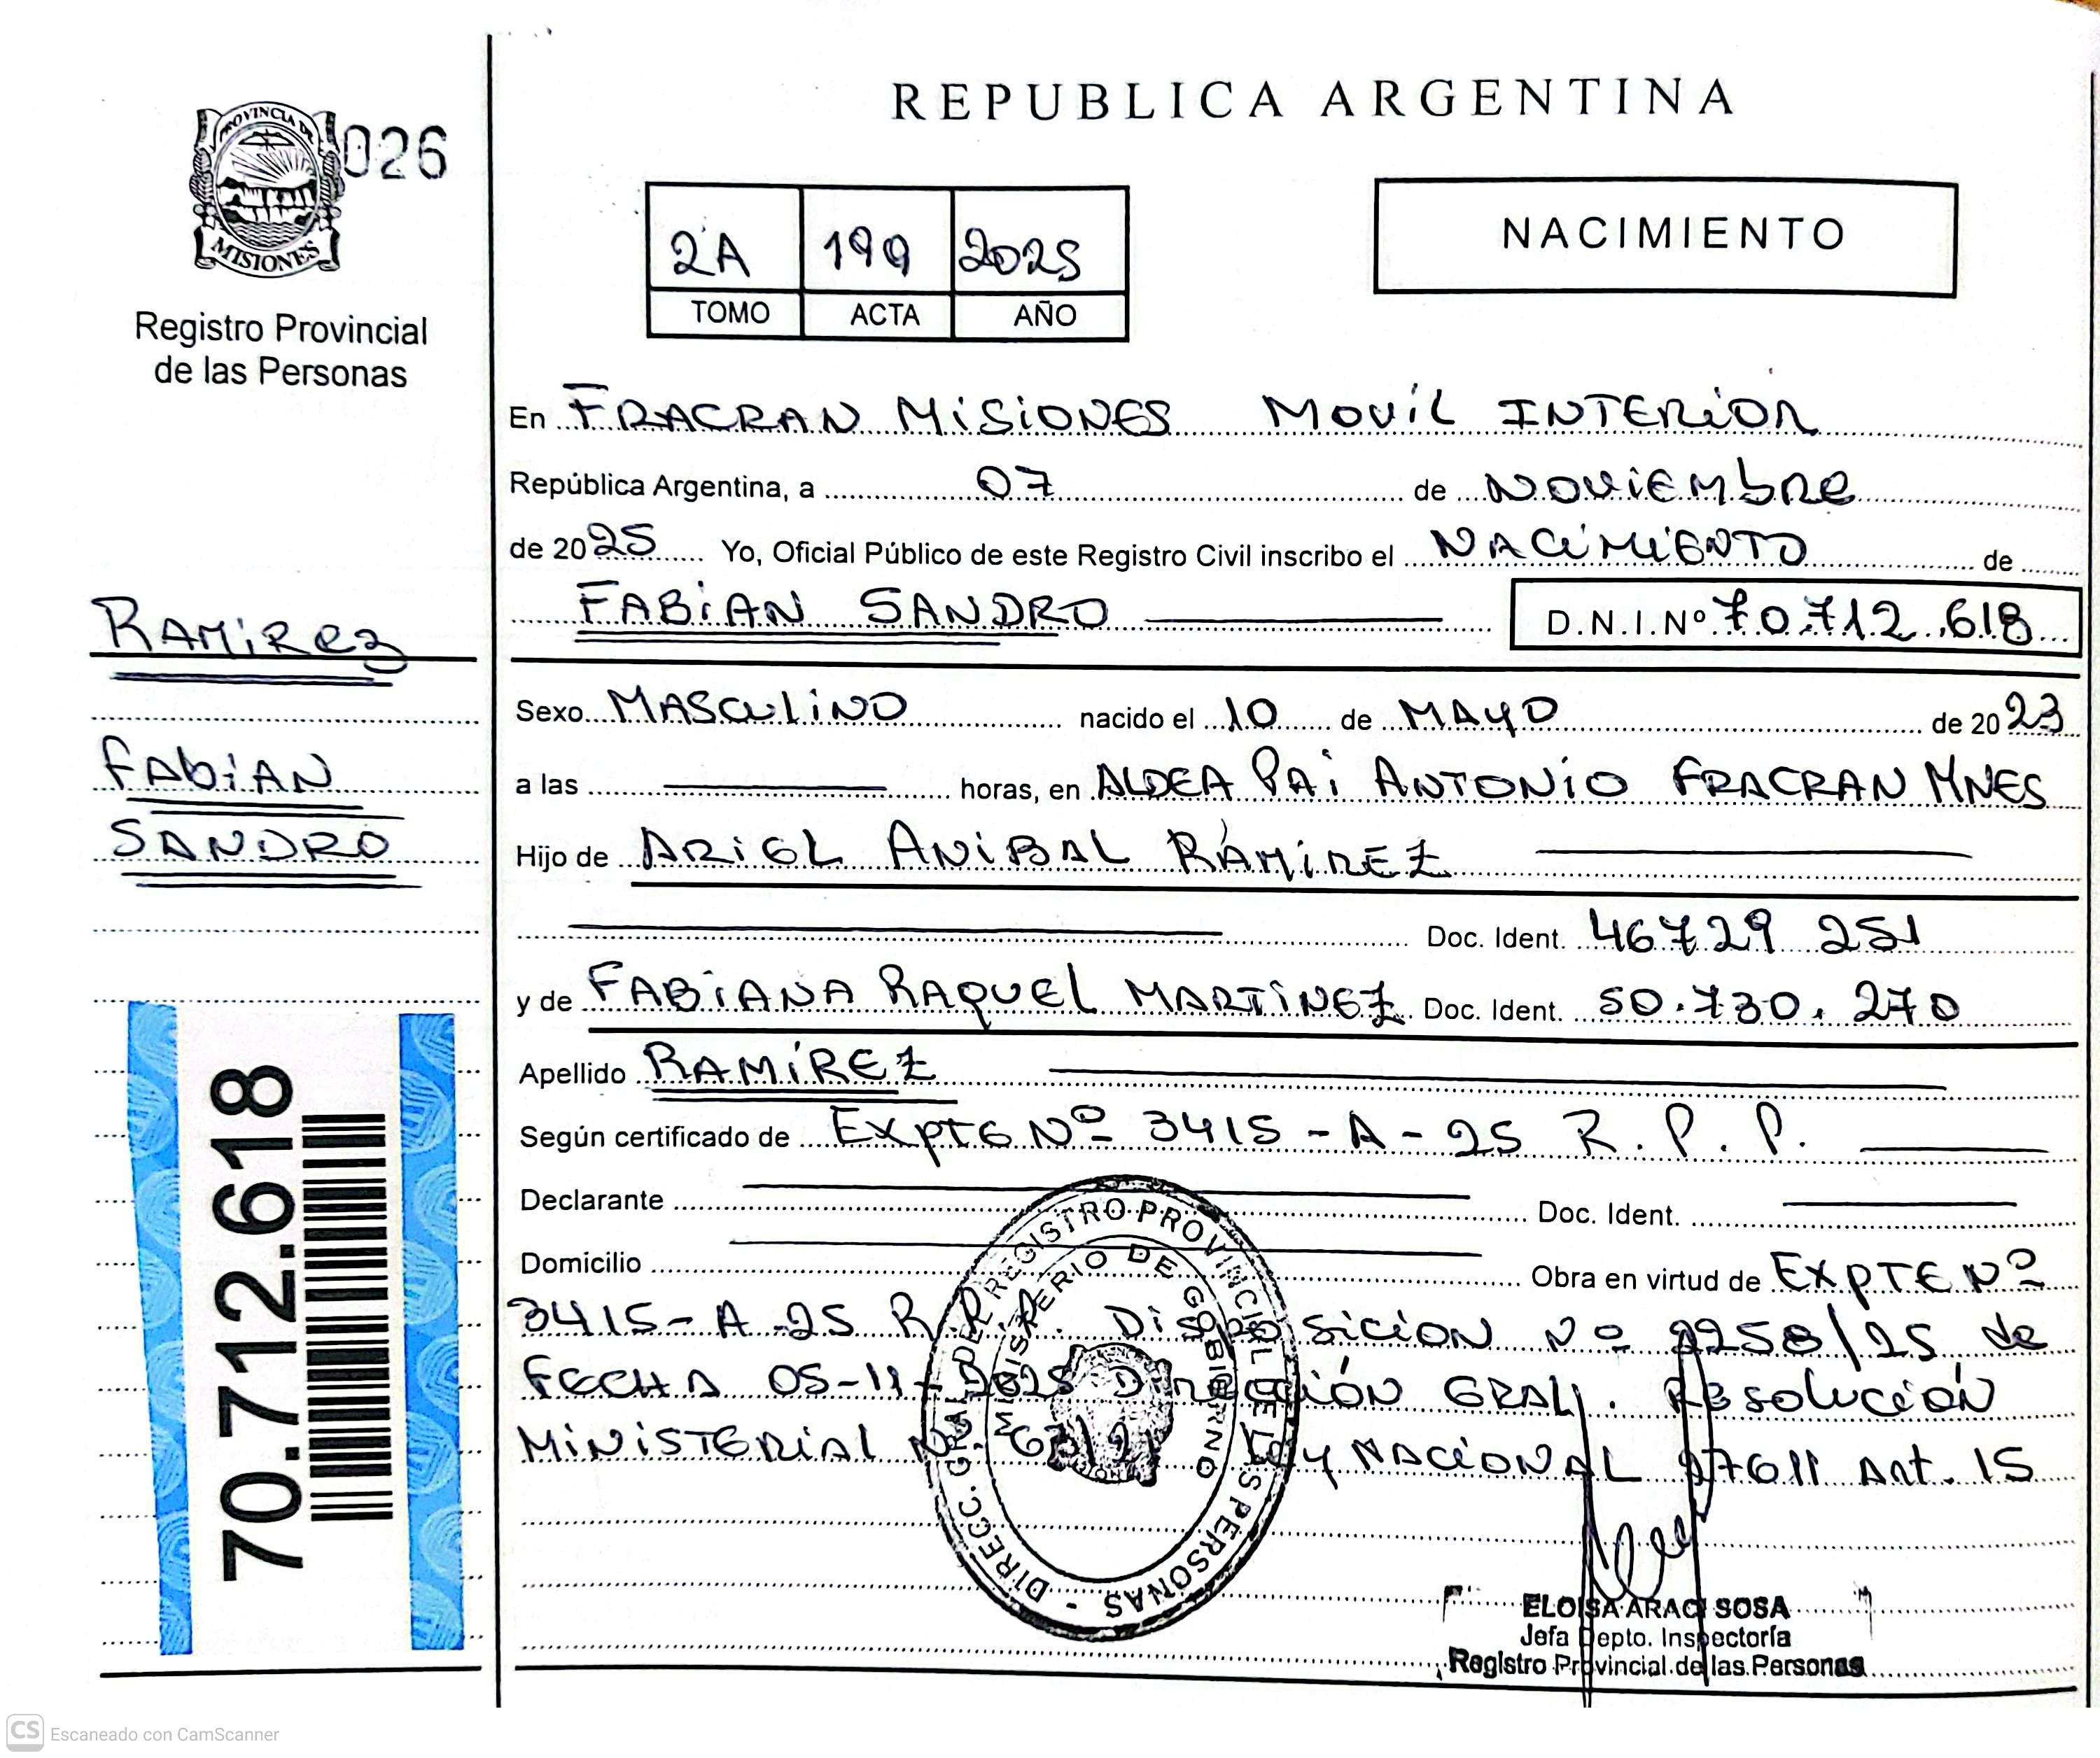 REPUBLICA ARGENTINA
PROVINCIA DE MISIONES
026
Registro Provincial
de las Personas
2A 199 2025
TOMO ACTA AÑO
NACIMIENTO
En FRACRAN MISIONES MOVIL INTERIOR
República Argentina, a 07 de NOVIEMbRE
de 2025 Yo, Oficial Público de este Registro Civil inscribo el NACIMIENTO de
FABIAN SANDRO D.N.I.Nº 70.712.618
Sexo MASCULINO nacido el 10 de MAYO de 2023
a las horas, en ALDEA PAI ANTONIO FRACRAN MNES
Hijo de ARIEL ANIBAL RAMIREZ
Doc. Ident. 46729 251
y de FABIANA RAQUEL MARTINEZ Doc. Ident. 50.730.270
Apellido RAMIREZ
Según certificado de EXPTE Nº 3415-A-25 R.P.P.
Declarante Doc. Ident.
Domicilio Obra en virtud de EXPTE Nº
3415-A-25 R.P.P. Disposicion Nº 2258/25 de
FECHA 05-11-2025 Dirección GRAL. Resolución
MINISTERIAL Ley NACIONAL 27611 Art. 15
RAMIREZ
FAbiAN
SANDRO
70.712.618
DIRECC. GRAL. DEL REGISTRO PROVINCIAL DE LAS PERSONAS -
MINISTERIO DE GOBIERNO
ELOISA ARACI SOSA
Jefa Depto. Inspectoría
Registro Provincial de las Personas
CS Escaneado con CamScanner